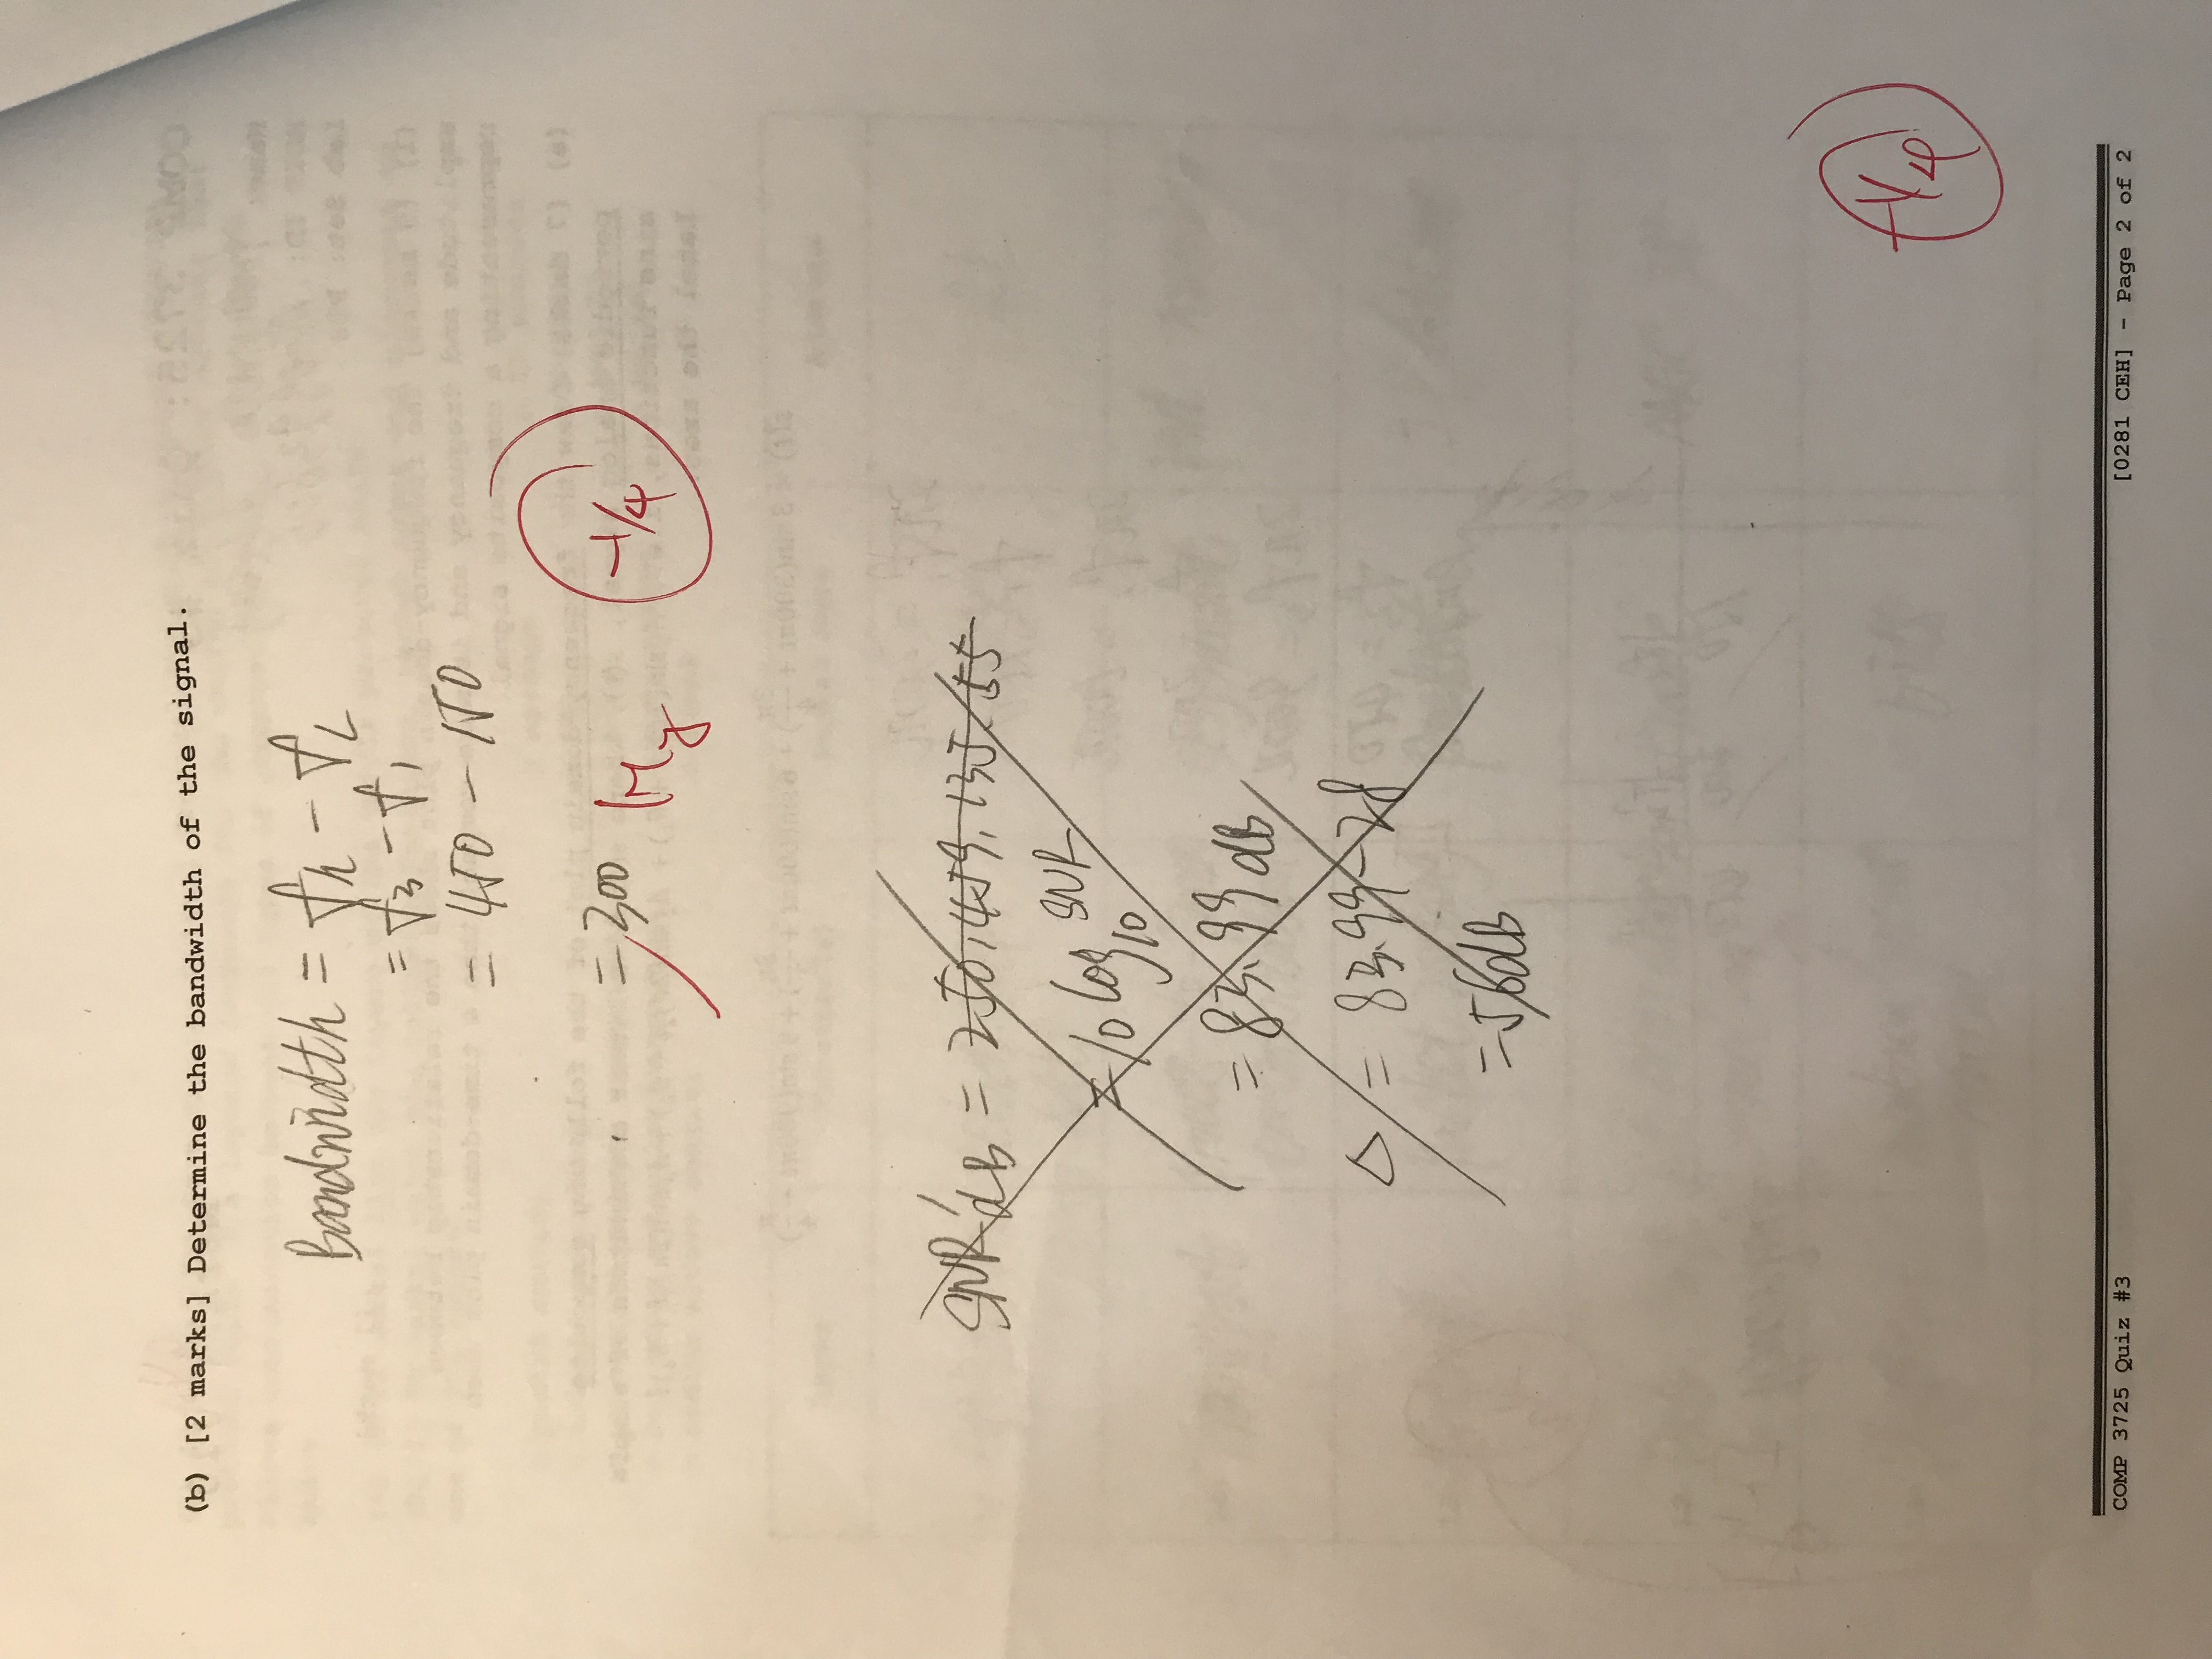 (b) [2 marks] Determine the bandwidth of the signal.
Bandwidth = fh - fL
= f3 - f1
= 450 - 150
= 300 Hz -1/4
SNR dB = 250,459,135.55
= 10 log10 SNR
= 83.99 dB
Δ = 83.99 - 28
= 56dB
-1/4
COMP 3725 Quiz #3 [0281 CEH] - Page 2 of 2